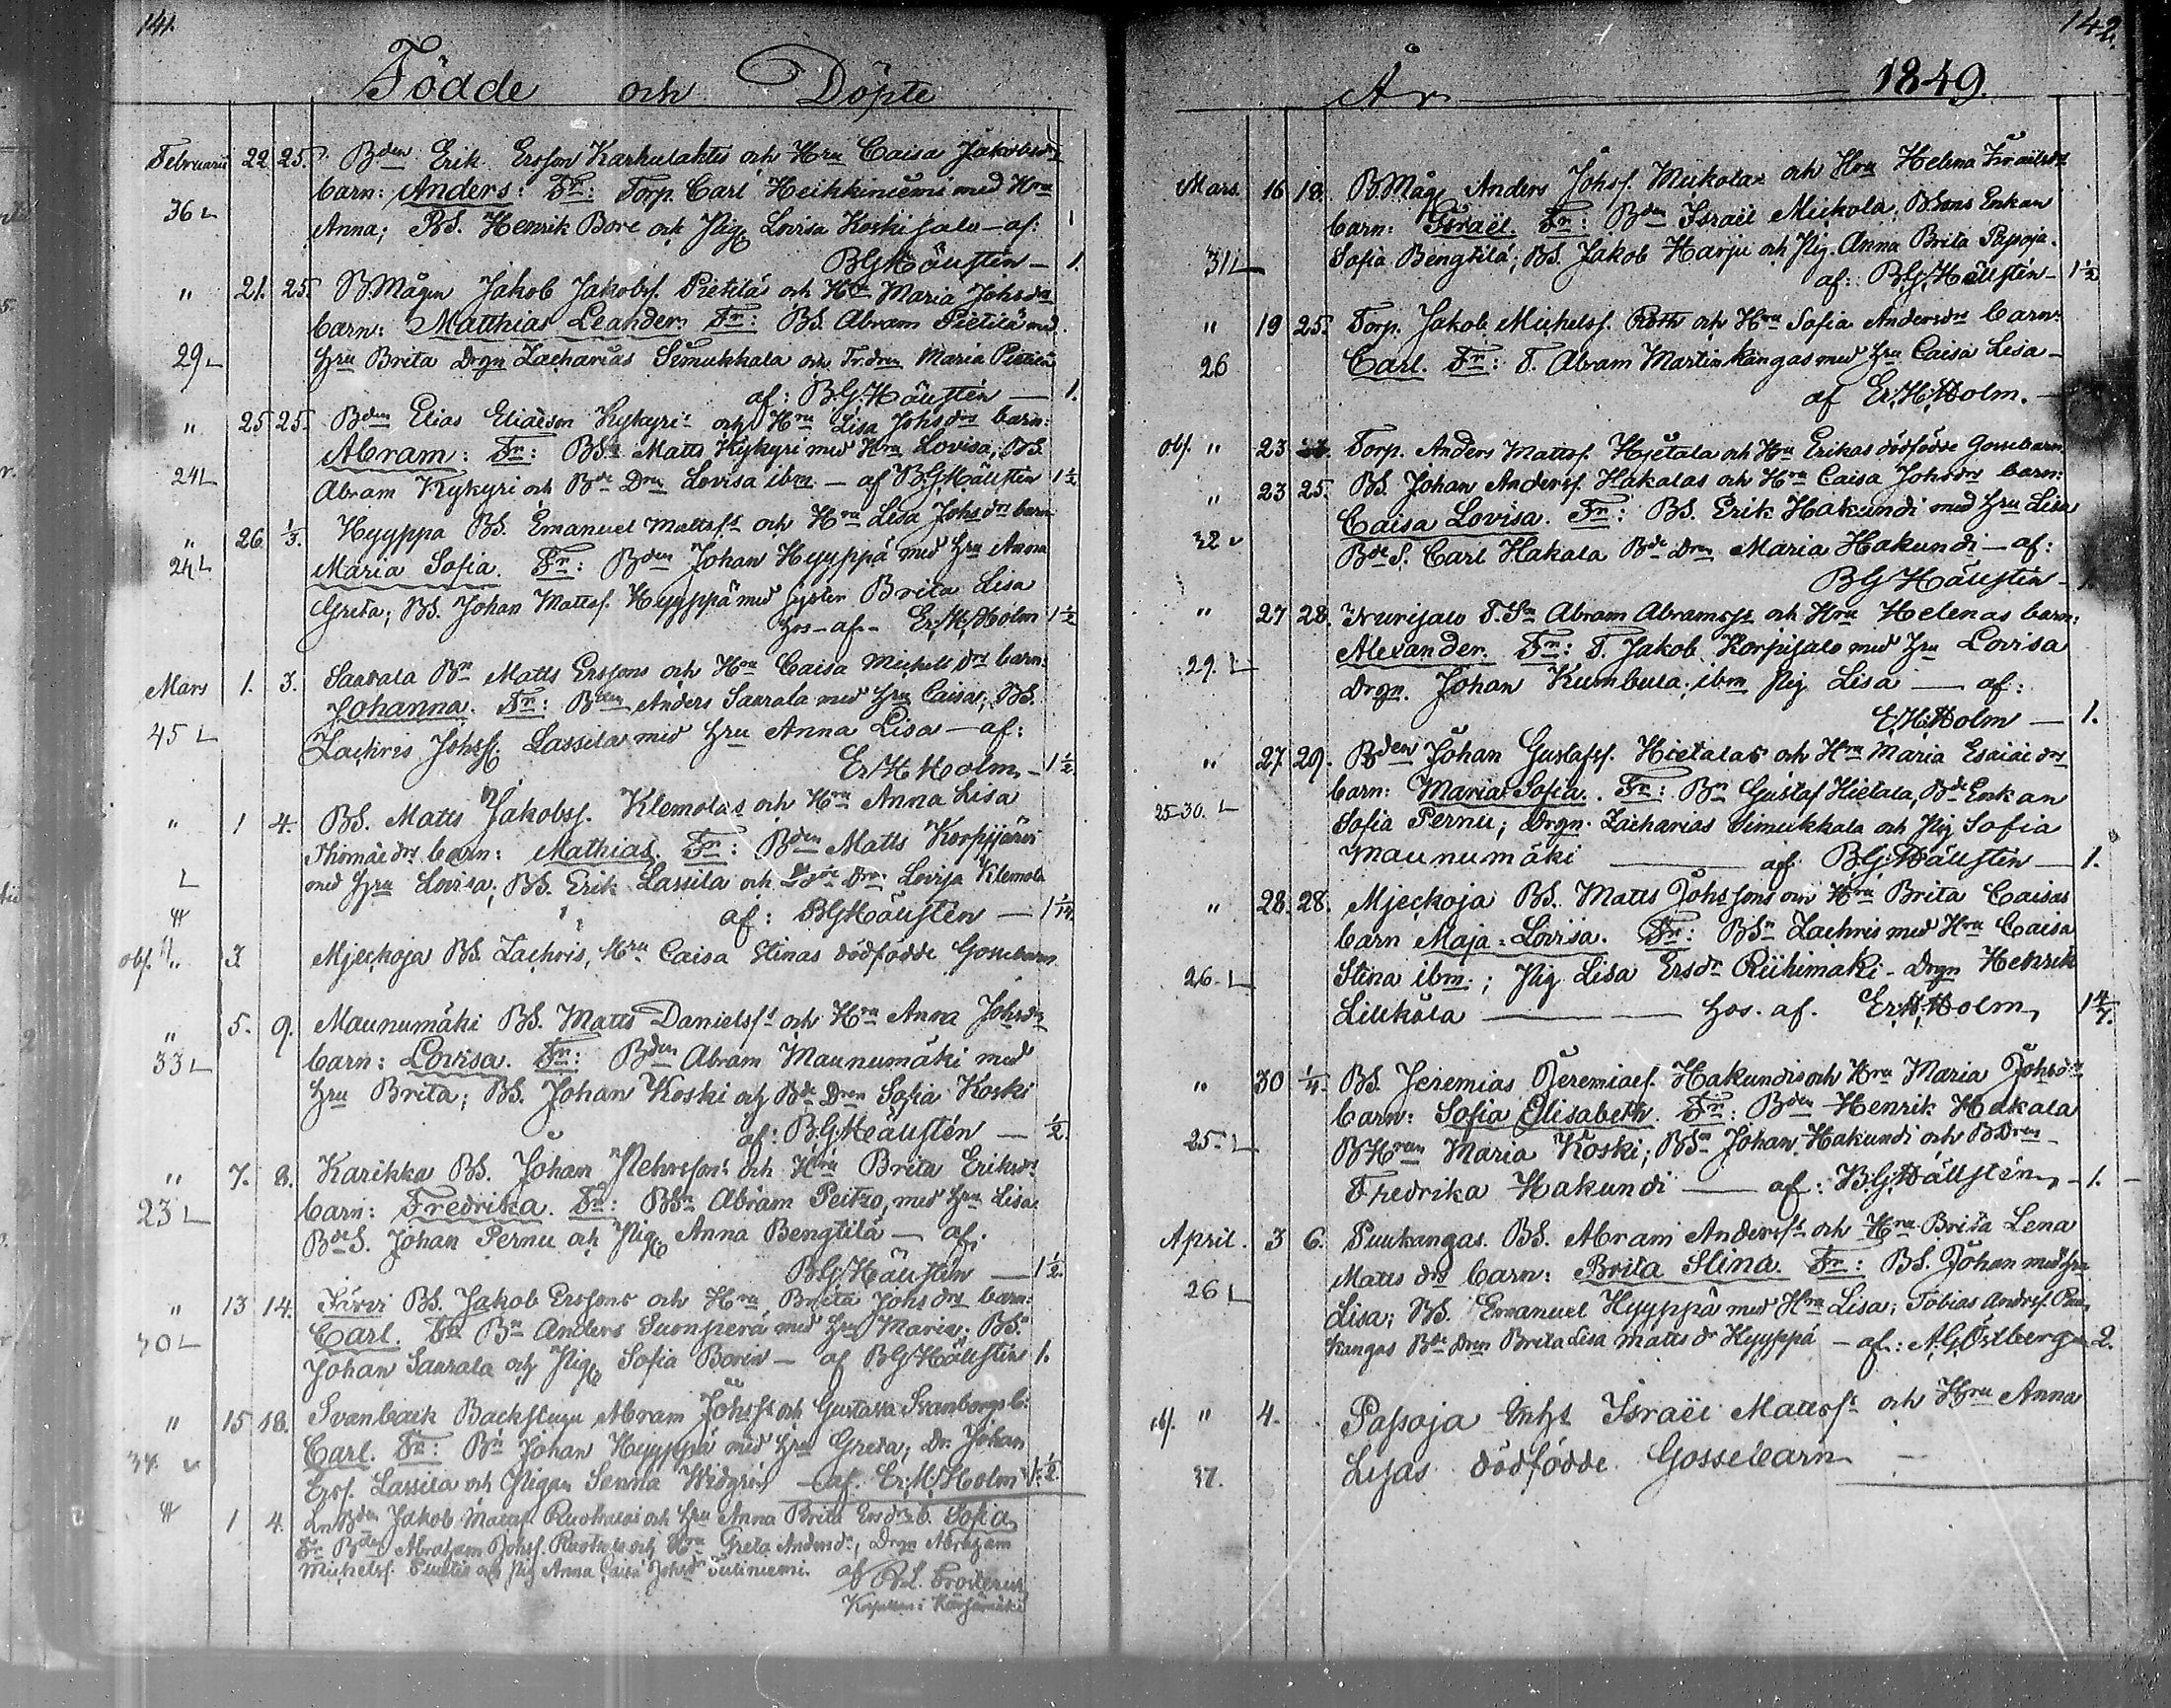 141.
Födde och Döpte
Februarii 22. 25. Bden Erik Ersson Karhulahtis och Hru Caisa Jakobsdrs
barn: Anders: Fr: Torp. Carl Heikkiniemi med Hru
36 L Anna; BS. Henrik Bore och Pig. Lovisa Koskisalo — af: 1
BG Hällstén — 1.
" 21. 25. B.Mågen Jakob Jakobss. Pietilás och Hru Maria Johsdrs
barn: Matthias Leander. Fr: BS. Abram Pietilä med
29 L hru Brita Drgn Zacharias Simukkala och Maria Pietilä
af: B.G. Hällstén — 1.
" 25 25. Bden Elias Eliaeson Kykyris och Hru Lisa Johsdrs barn:
Abram: Fr: BSn Matts Kykyri med Hru Lovisa; BS.
24 L Abram Kykyri och Bde Drn Lovisa ibm — af B.G. Hällstén 1 1/2
" 26. 1/3. Hyyppä BS. Emanuel Mattss och Hru Lisa Johsdrs barn
24 L Maria Sofia. Fr: Bden Johan Hyyppä med hru Anna
Greta; BS. Johan Mattss. Hyyppä med syster Brita Lisa
hos — af — Er. H. Holm 1 1/2
Mars 1. 3. Saarala Bn Matts Erssons och Hru Caisa Michelsdrs barn:
Johanna. Fr: Bden Anders Saarala med hru Caisa; BS.
45 L Zachris Johss. Lassila med hru Anna Lisa — af:
Er H Holm — 1 1/2
" 1 4. BS. Matts Jakobss. Klemolas och Hru Anna Lisa
Thomaedrs barn: Mathias. Fr: Bden Matts Korpijärvi
L med hru Lovisa; BS. Erik Lassila och Bde Drn Lovisa Klemola
af: BG Hällstén —
obs. " 3 Mjeckoja BS. Zachris, Hru Caisa Stinas dödfödde Gossebarn
" 5. 9. Maunumäki BS. Matts Danielss och Hru Anna Johsdrs
33 L barn: Lovisa. Fr: Bden Abram Maunumäki med
hru Brita; BS. Johan Koski och Bde Drn Sofia Koski
af: B.G. Hällstén — 1/2.
" 7. 8. Karikka BS. Johan Pehrssons och Hru Brita Eriksdrs
23 L barn: Fredrika. Fr: BSn Abram Peitzo, med hru Lisa
BdeS. Johan Pernu och Pig. Anna Bengtilä — af.
BG Hällstén — 1 1/2.
" 13 14. Järvi BS. Jakob Erssons och Hru Brita Johsdrs barn:
30 L Carl. Fr Bn Anders Suonperä med hru Maria; BS.
Johan Saarala och Pig. Sofia Borin — af BG Hällstén 1.
" 15 18. Svanbäck Backstugu Abram Johss och Gustava Svanborgs b:
Carl. Fr: Bn Johan Hyyppä med hru Greta; Dr. Johan
Erss. Lassila och Pigan Senna Widgrén — af. Er. H. Holm 1 1/2
1 4. Bden Jakob Matss Ruotsalas och hru Anna Brita Ersdrs b. Sofia
Fr Bden Abraham Johss. Ruotsala och Hru Greta Andersdr, Drgn Abraham
Michelss. och Pig Anna Caisa Johsdr af
Kärsämäki
142.
År 1849.
Mars. 16 18. B.Måg Anders Johss. Mickolas och Hru Helena Israelsdrs
barn: Israël. Fr: Bden Israël Mickola; BSons Enkan
31 L Sofia Bengtilä; BS. Jakob Harju och Pig. Anna Brita Passoja.
af: B.G. Hällstén — 1 1/2
" 19 25. Torp. Jakob Michelss. Roths och Hru Sofia Andersdrs barn:
26 Carl. Fr: T. Abram Martinkangas med hru Caisa Lisa —
af Er. H. Holm. —
obs. " 23 Torp. Anders Mattss. Hietala och Hru Erikas dödfödde Gossebarn.
" 23 25. BS. Johan Anderss. Hakalas och Hru Caisa Johsdrs barn:
Caisa Lovisa. Fr: BS. Erik Hakundi med hru Lisa
32 Bde S. Carl Hakala Bde Drn Maria Hakundi — af:
BG Hällstén —
" 27 28. Nurisalo T.Sn Abram Abramss och Hru Helenas barn:
29. L Alexander. Fr: T. Jakob Korpisalo med hru Lovisa
Drgn. Johan Kumbula; ibm Pig Lisa — af:
E. H. Holm — 1.
" 27 29. Bden Johan Gustafss. Hietalas och Hru Maria Esaiaedrs
25-30. L barn: Maria Sofia. Fr: Bn Gustaf Hietala, Bde Enkan
Sofia Pernu; Drgn. Zacharias Simukkala och Pig Sofia
Maunumäki — af: B.G. Hällstén — 1.
" 28. 28. Mjeckoja BS. Matts Johssons och Hru Brita Caisas
barn Maja-Lovisa. Fr: BSn Zachris med Hru Caisa
26. L Stina ibm.; Pig Lisa Ersdr Riihimäki — Drgn Henrik
Lillkåla — hos. af. Er. H. Holm, 1 4/7.
" 30 1/4. BS. Jeremias Jeremiaes. Hakundis och Hru Maria Johsdrs
barn: Sofia Elisabeth. Fr: Bden Henrik Hakala
25. L BHrun Maria Koski; BSn Johan Hakundi och BDrn
Fredrika Hakundi — af: B.G. Hällstén, — 1.
April. 3 6. Puukangas. BS. Abram Anderss och Hru Brita Lena
26 L Matts drs barn: Brita Stina. Fr: BS. Johan med hru
Lisa; BS. Emanuel Hyyppä med Hru Lisa; Tobias Andrss. Puu
kangas Bde Drn Brita Lisa Mattsdr Hyyppä — af: A.G. Östberg 2.
obs. " 4. Passoja Inhs Israël Mattss och Hru Anna
37. Lisas dödfödde Gossebarn —